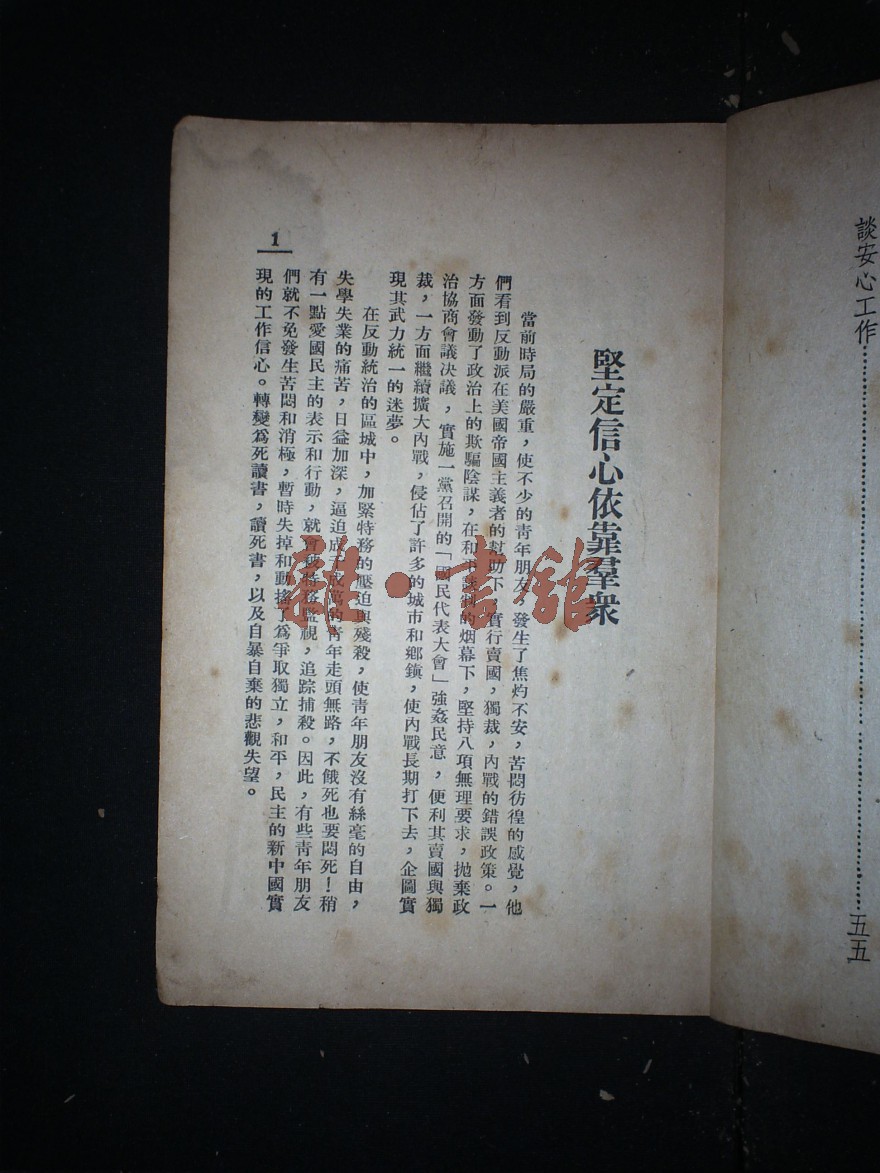 談安心工作……………………五五
堅定信心依靠羣衆
當前時局的嚴重，使不少的青年朋友，發生了焦灼不安，苦悶彷徨的感覺，他
們看到反動派在美國帝國主義者的幫助下，實行賣國，獨裁，內戰的錯誤政策。一
方面發動了政治上的欺騙陰謀，在和平談判的烟幕下，堅持八項無理要求，拋棄政
治協商會議決議，實施一黨召開的「國民代表大會」強姦民意，便利其賣國與獨
裁，一方面繼續擴大內戰，侵佔了許多的城市和鄉鎮，使內戰長期打下去，企圖實
現其武力統一的迷夢。
在反動統治的區城中，加緊特務的壓迫與殘殺，使青年朋友沒有絲毫的自由，
失學失業的痛苦，日益加深，逼迫成千成萬的青年走頭無路，不餓死也要悶死！稍
有一點愛國民主的表示和行動，就會被特務監視，追踪捕殺。因此，有些青年朋友
們就不免發生苦悶和消極，暫時失掉和動搖了爲爭取獨立，和平，民主的新中國實
現的工作信心。轉變爲死讀書，讀死書，以及自暴自棄的悲觀失望。
1
雜·書館